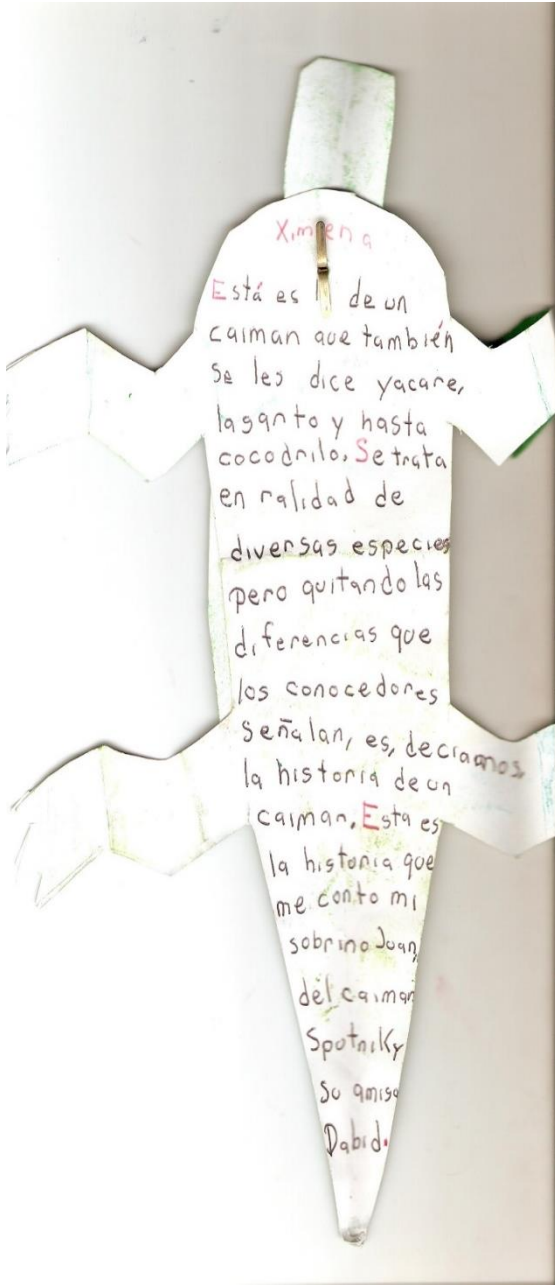 Ximena
Está es de un
caiman que también
se les dice yacare,
laganto y hasta
cocodrilo. Se trata
en ralidad de
diversas especies
pero quitando las
diferencias que
los conocedores
señalan, es, deciamos,
la historia de un
caiman. Esta es
la historia que
me conto mi
sobrino Juan,
del caiman
Spotniky
su amigo
Dabid.